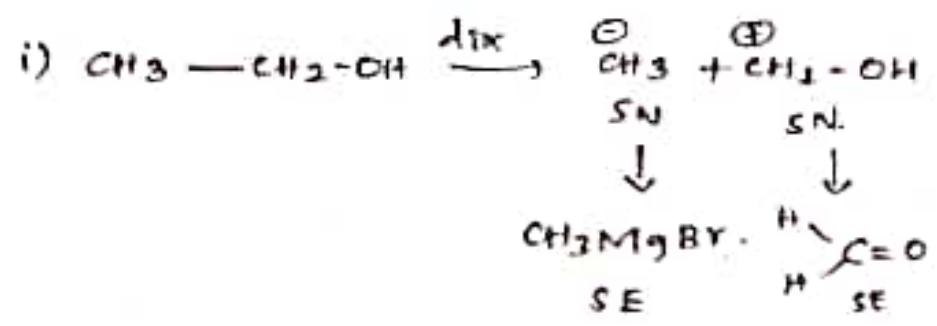 i) CH3 — CH2-OH dix → ⊖CH3 + ⊕CH2 - OH
SN SN.
↓ ↓
CH3MgBr. H H C=O
SE SE